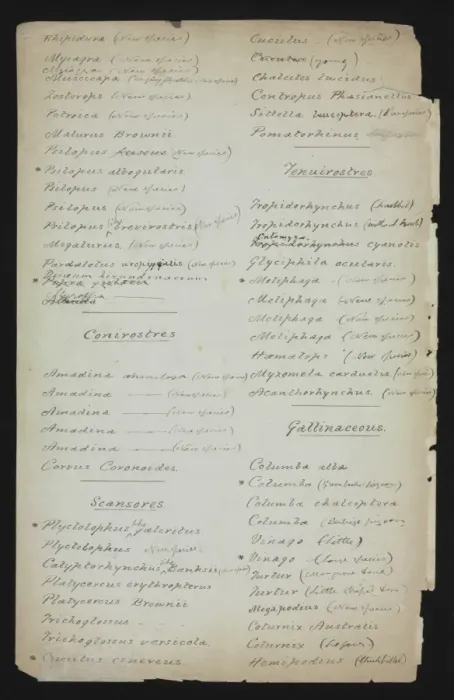 Rhipidura (New species)
Myiagra (New species)
Myiagra (New species)
Muscicapa
Zosterops (New species)
Petroica (New species)
Malurus Brownii
Psilopus fuscus (New species)
* Psilopus albogularis
Psilopus (New species)
Psilopus (New species)
Psilopus brevirostris (New species)
Megalurus (New species)
Pardalotus uropygialis (New species)
Dicæum hirundinaceum
Conirostres
Amadina (New species)
Amadina —— (New species)
Amadina —— (New species)
Amadina —— (New species)
Amadina —— (New species)
Corvus Coronoides.
Scansores
* Plyctolophus galeritus
Plyctolophus New species
Calyptorhynchus Banksii
Platycercus erythropterus
Platycercus Brownii
Trichoglossus
Trichoglossus versicola
* Cuculus cinereus
Cuculus . (New species)
Cuculus (young)
Chalcites lucidus
Centropus Phasianellus
Sittella leucoptera. (New species)
Pomatorhinus
Tenuirostres
Tropidorhynchus
Tropidorhynchus
Entomyza
Tropidorhynchus cyanotis
Glyciphila ocularis.
* Meliphaga . (New species)
Meliphaga (New species)
Meliphaga (New species)
Meliphaga (New species)
Hæmatops (New species)
Myzomela (New species)
Acanthorhynchus. (New species)
Gallinaceous.
Columba alba
* Columba
Columba chalcoptera
Columba
Vinago (little)
* Vinago (New species)
Turtur
Turtur
Megapodius (New species)
Coturnix Australis
Coturnix (Large)
Hemipodius (thick billed)